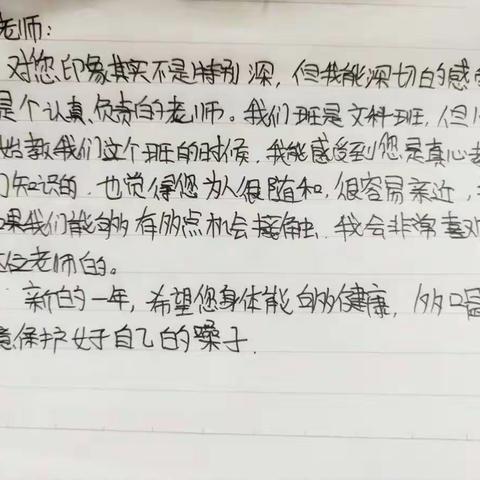 老师：
对您印象其实不是特别深，但我能深切的感
是个认真、负责的老师。我们班是文科班，但
始教我们这个班的时候，我能感受到您是真心
们知识的，也觉得您为人很随和，很容易亲近，
如果我们能够有多点机会接触，我会非常喜欢
这位老师的。
新的一年，希望您身体能够够健康，多喝
意保护好自己的嗓子.